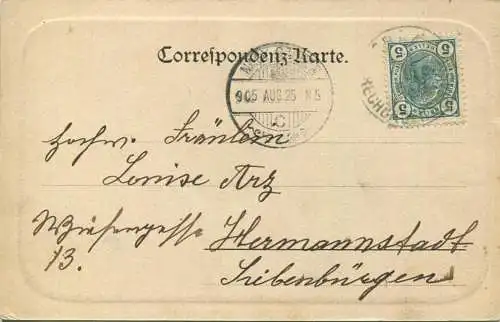 Correspondenz-Karte.
5 5
5 5
905 AUG 25
C
Hochw. Fräulein
Louise Arz
Wiesengasse Hermannstadt
13. Siebenbürgen